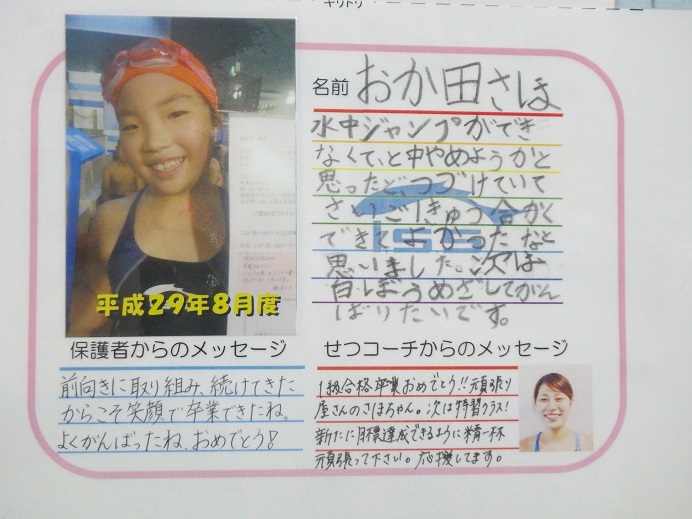 キリトリ
名前 おか田さほ
水中ジャンプができ
なくて、と中やめようかと
思ったど、つづけていて
さいごきゅう合かく
できてよかったなと
思いました。次は
白ぼうめざしてがん
ばりたいです。
ISS
平成29年8月度
保護者からのメッセージ
前向きに取り組み、続けてきた
からこそ笑顔で卒業できたね。
よくがんばったね、おめでとう!
せつコーチからのメッセージ
1級合格卒業おめでとう!!頑張り
屋さんのさほちゃん。次は特習クラス!
新たに目標達成できるように精一杯
頑張って下さい。応援してます。